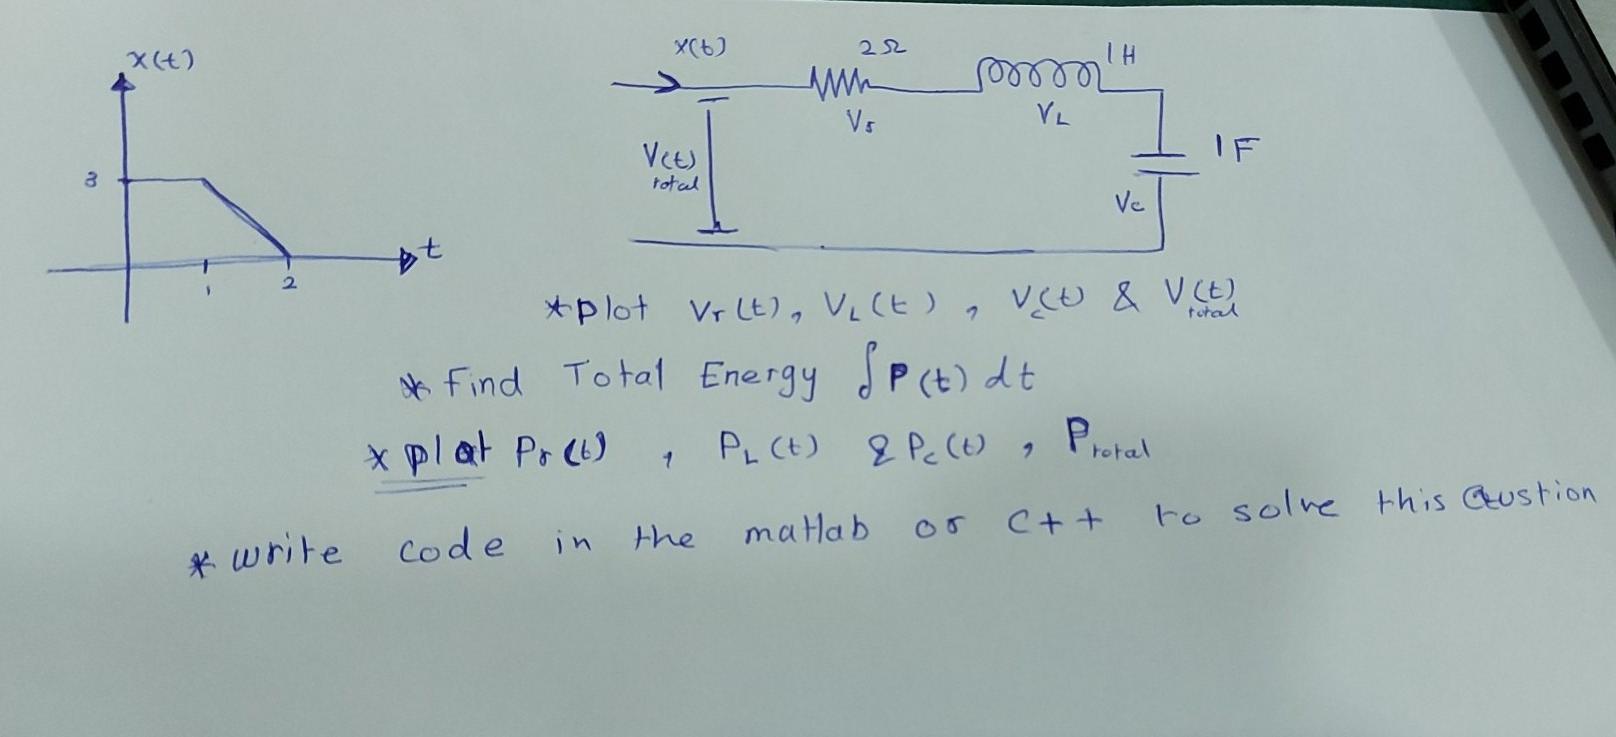 x(t)
3
1
2
t
x(t)
2Ω
1H
Vr
VL
V(t)
total
1F
Vc
*plot Vr(t), VL(t), Vc(t) & V(t)
total
* Find Total Energy ∫P(t) dt
* plot Pr(t), PL(t) & Pc(t), Ptotal
* write code in the matlab or C++ to solve this Qustion